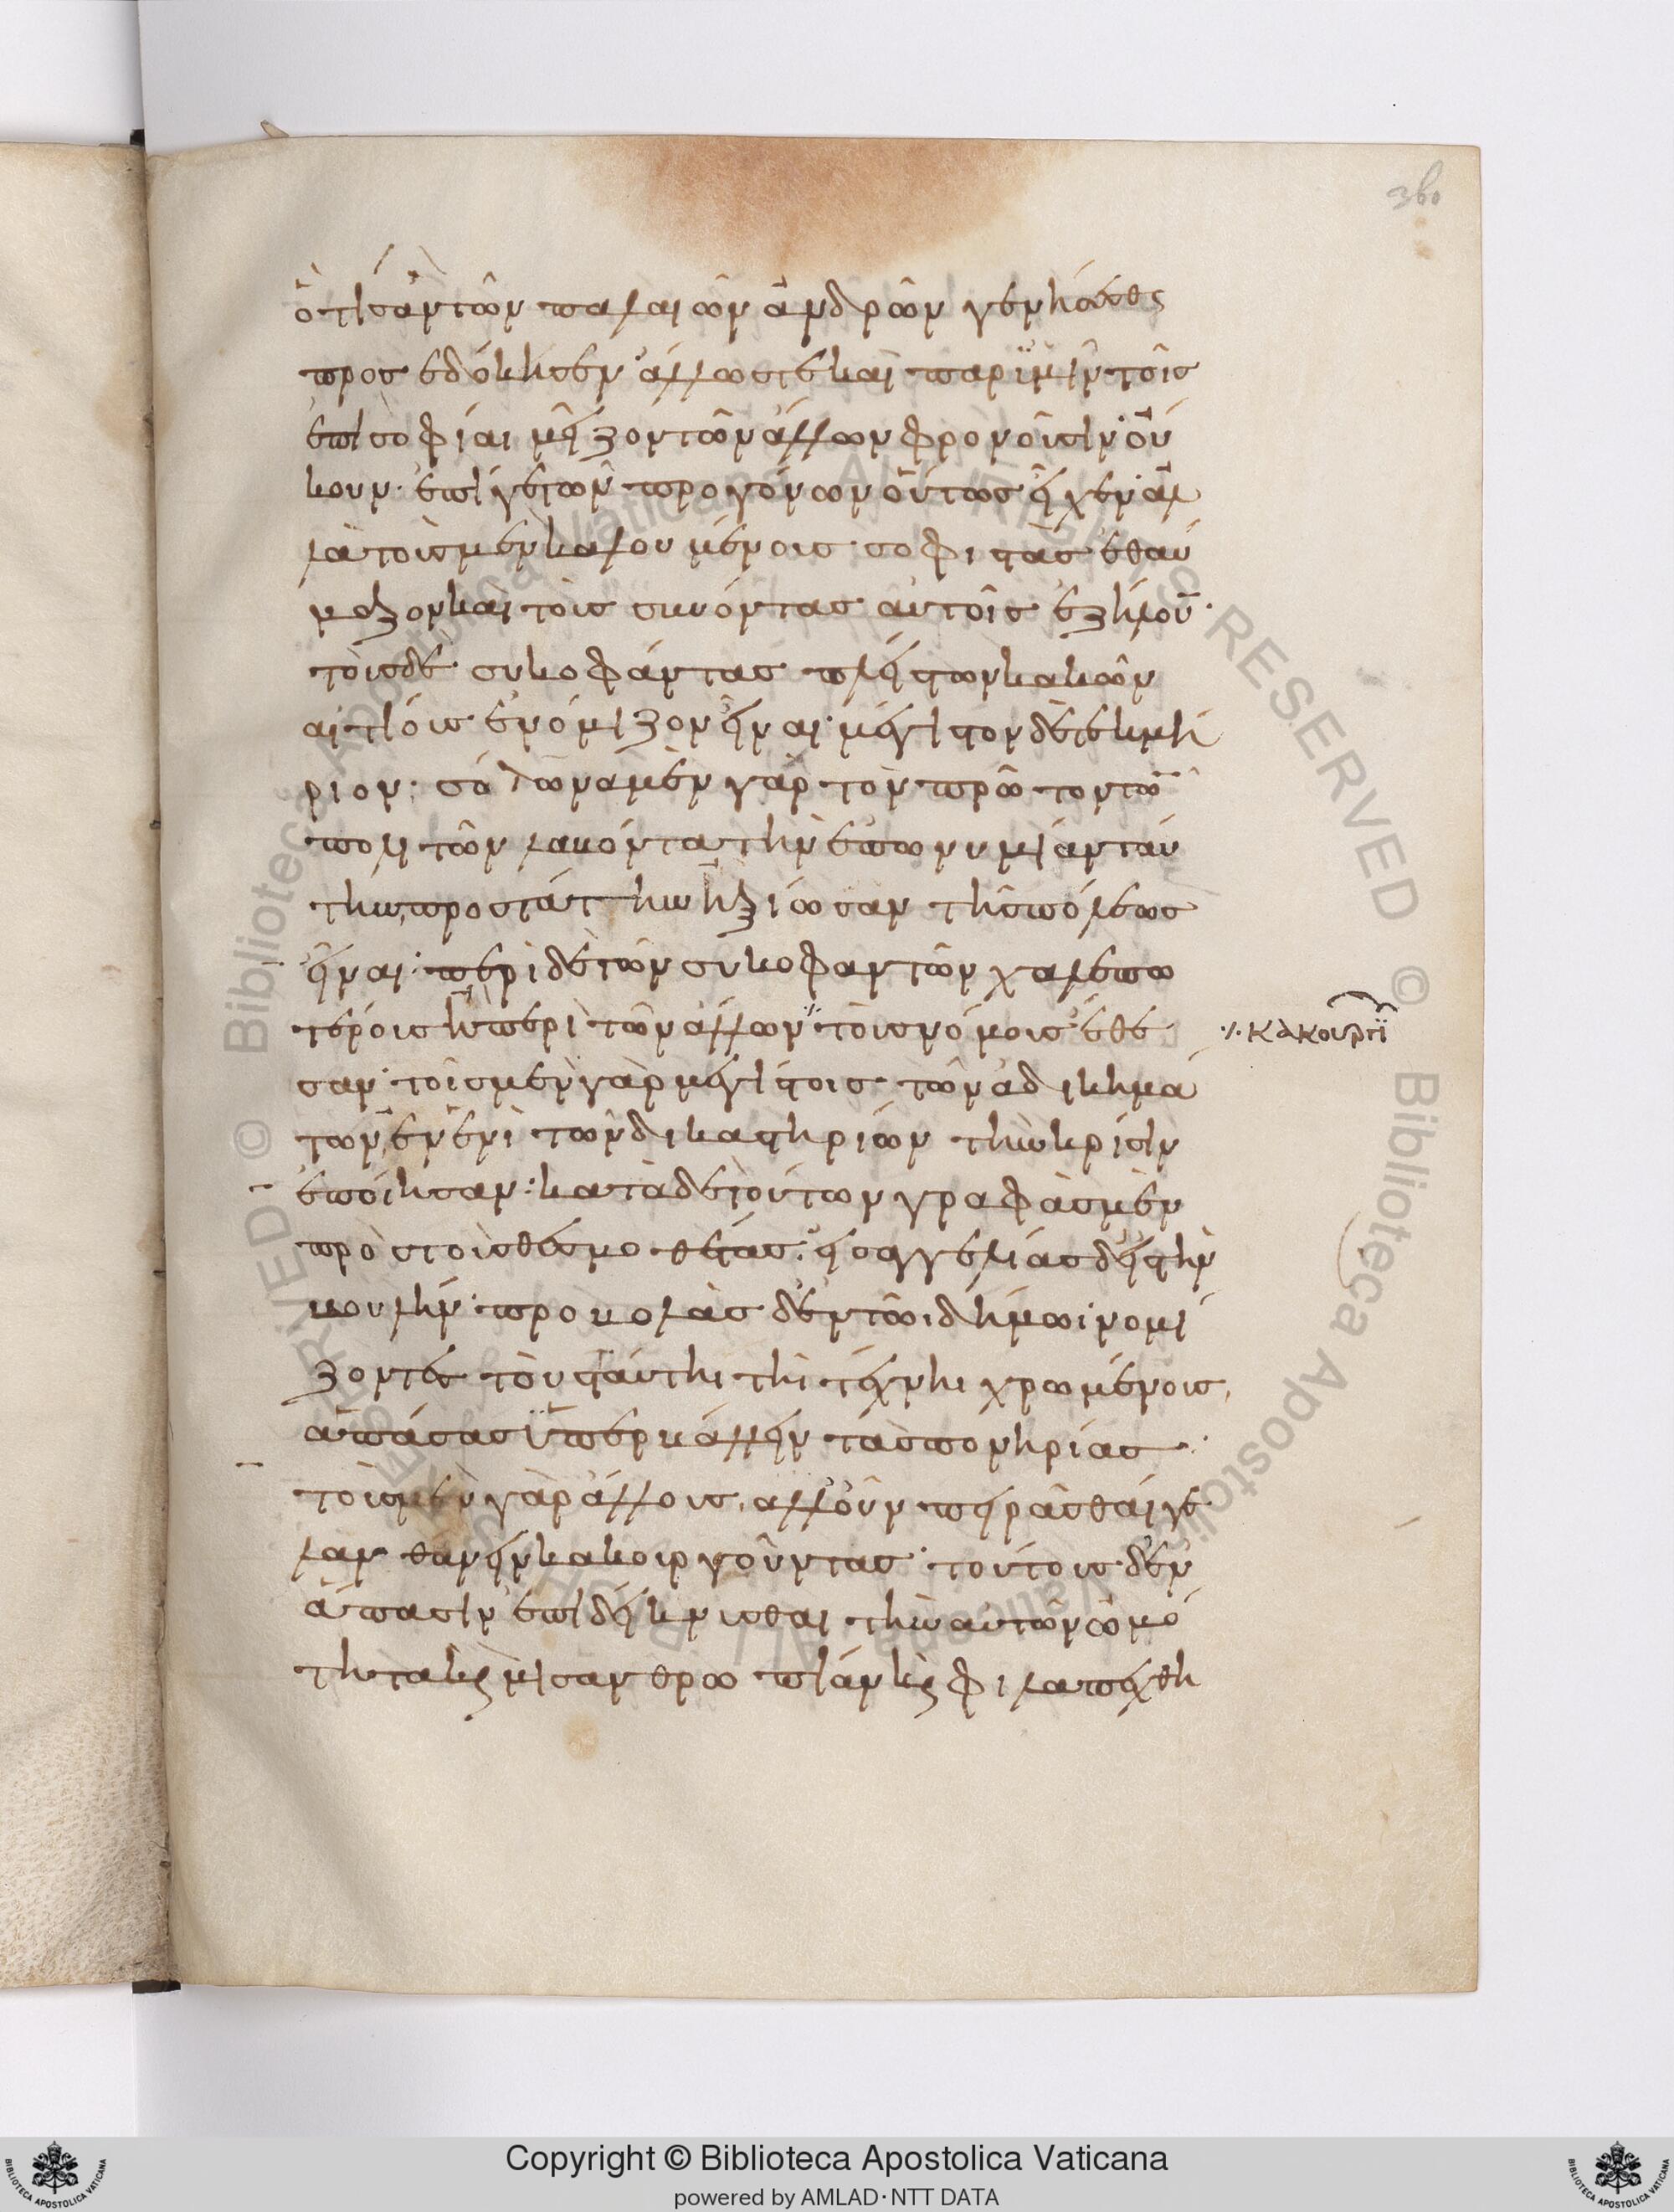 360
ὅτι σαν τῶν παλαιῶν ἀνδρῶν γενήσεσθε
προσεδόκησεν ἄλλως τε καὶ παρ ϋμῖν τοῖς
ἐπι σοφίαι μεῖζον τῶν ἄλλων φρονοῦσιν· οὔ
κουν ἐπί γε τῶν προγόνων οὕτως εἶχεν· ἀλ
λὰ τοὺς μὲν καλουμένους σοφιστὰς ἐθαύ
μαζον καὶ τοὺς συνόντας αὐτοῖς ἐζήλουν·
τοὺς δὲ συκοφάντας πλείστων κακῶν
αἰτίους ἐνόμιζον εἶναι· μέγιστον δὲ τεκμή
ριον· σόλωνα μὲν γὰρ τὸν πρῶτον τῶν
πολιτῶν λαβόντα τὴν ἐπωνυμίαν ταύ
την, προστάτην ἠξίωσαν τῆς πόλεως
εἶναι· περὶ δὲ τῶν συκοφαντῶν χαλεπω
τέρους ἢ περὶ τῶν ἄλλων τοὺς νόμους ἔθε
σαν· τοῖς μὲν γὰρ μεγίστοις τῶν ἀδικημά
των, ἐν ἑνὶ τῶν δικαστηρίων τὴν κρίσιν
ἐποίησαν· κατὰ δὲ τούτων γραφὰς μὲν
πρὸς τοὺς θεσμοθέτας· εἰσαγγελίας δ' εἰς τὴν
βουλήν· προβολὰς δ' ἐν τῶι δήμωι· νομί
ζοντες τοὺς ταύτηι τῆι τέχνηι χρωμένους,
ἁπάσας ὑπερβάλλειν τὰς πονηρίας·
τοὺς μὲν γὰρ ἄλλους, ἀλλ' οὖν πειρᾶσθαί γε
λανθάνειν κακουργοῦντας· τούτους δ' ἐν
ἅπασιν ἐπιδείκνυσθαι τὴν αὑτῶν ὠμό
τητα κ(αὶ) μισανθρωπίαν κ(αὶ) φιλαπεχθη
·/. κακουργιῶν
Copyright © Biblioteca Apostolica Vaticana
powered by AMLAD·NTT DATA